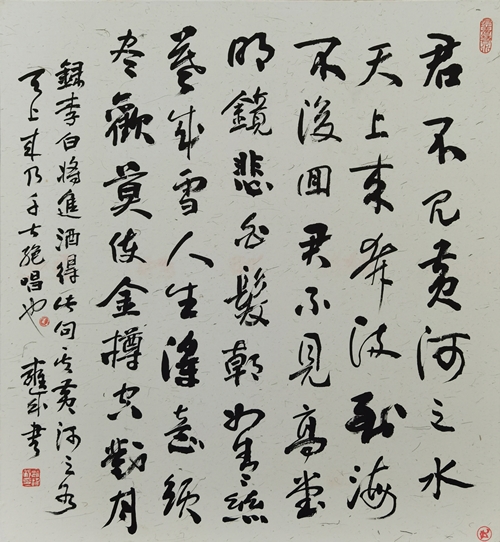 君不見黄河之水
天上来奔流到海
不復回君不見高堂
明鏡悲白髮朝如青絲
暮成雪人生得意須
尽歡莫使金樽空對月
録李白將進酒得此句其黄河之水
天上来乃千古絶唱也
雍成書